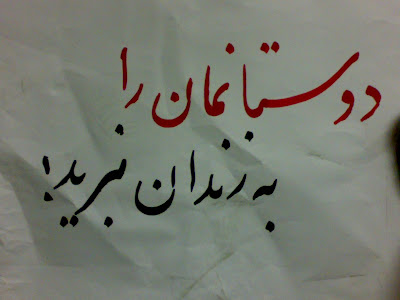 دوستانمان را
به زندان نبرید!